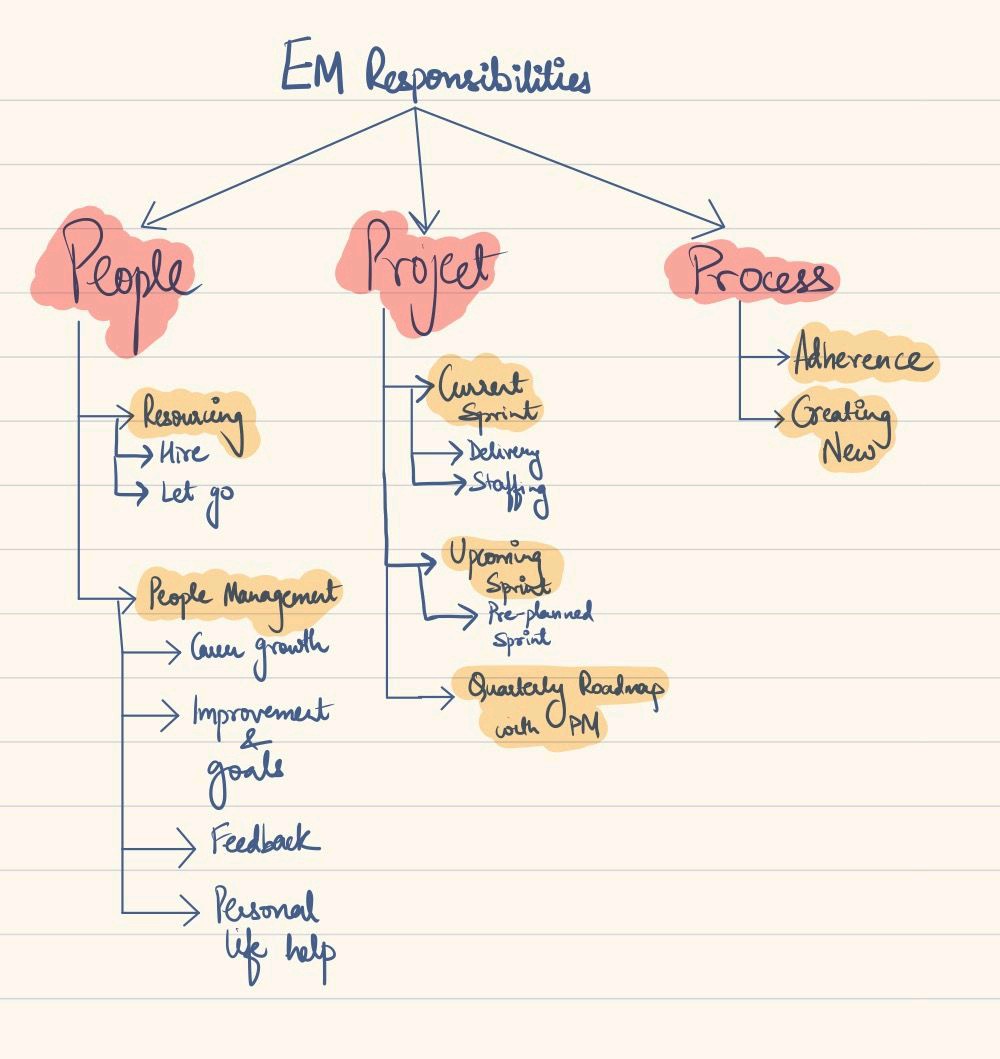 EM Responsibilities
People
Resourcing
Hire
Let go
People Management
Career growth
Improvement
&
goals
Feedback
Personal
life help
Project
Current
Sprint
Delivery
Staffing
Upcoming
Sprint
Pre-planned
Sprint
Quarterly Roadmap
with PM
Process
Adherence
Creating
New